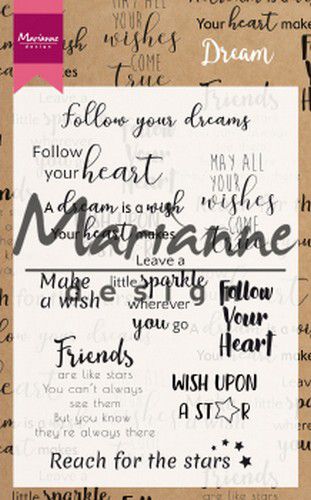 Marianne
design
MAY ALL
YOUR
wishes
COME
true
Your heart makes
Dream
Follow your dreams
Follow
your heart
MAY ALL
YOUR
wishes
COME
true
A dream is a wish
Your heart makes
Marianne
design
Make
a wish
Leave a
little sparkle
wherever
you go
Follow
Your
Heart
Friends
are like stars
You can't always
see them
But you know
they're always there
WISH UPON
A STAR
Reach for the stars